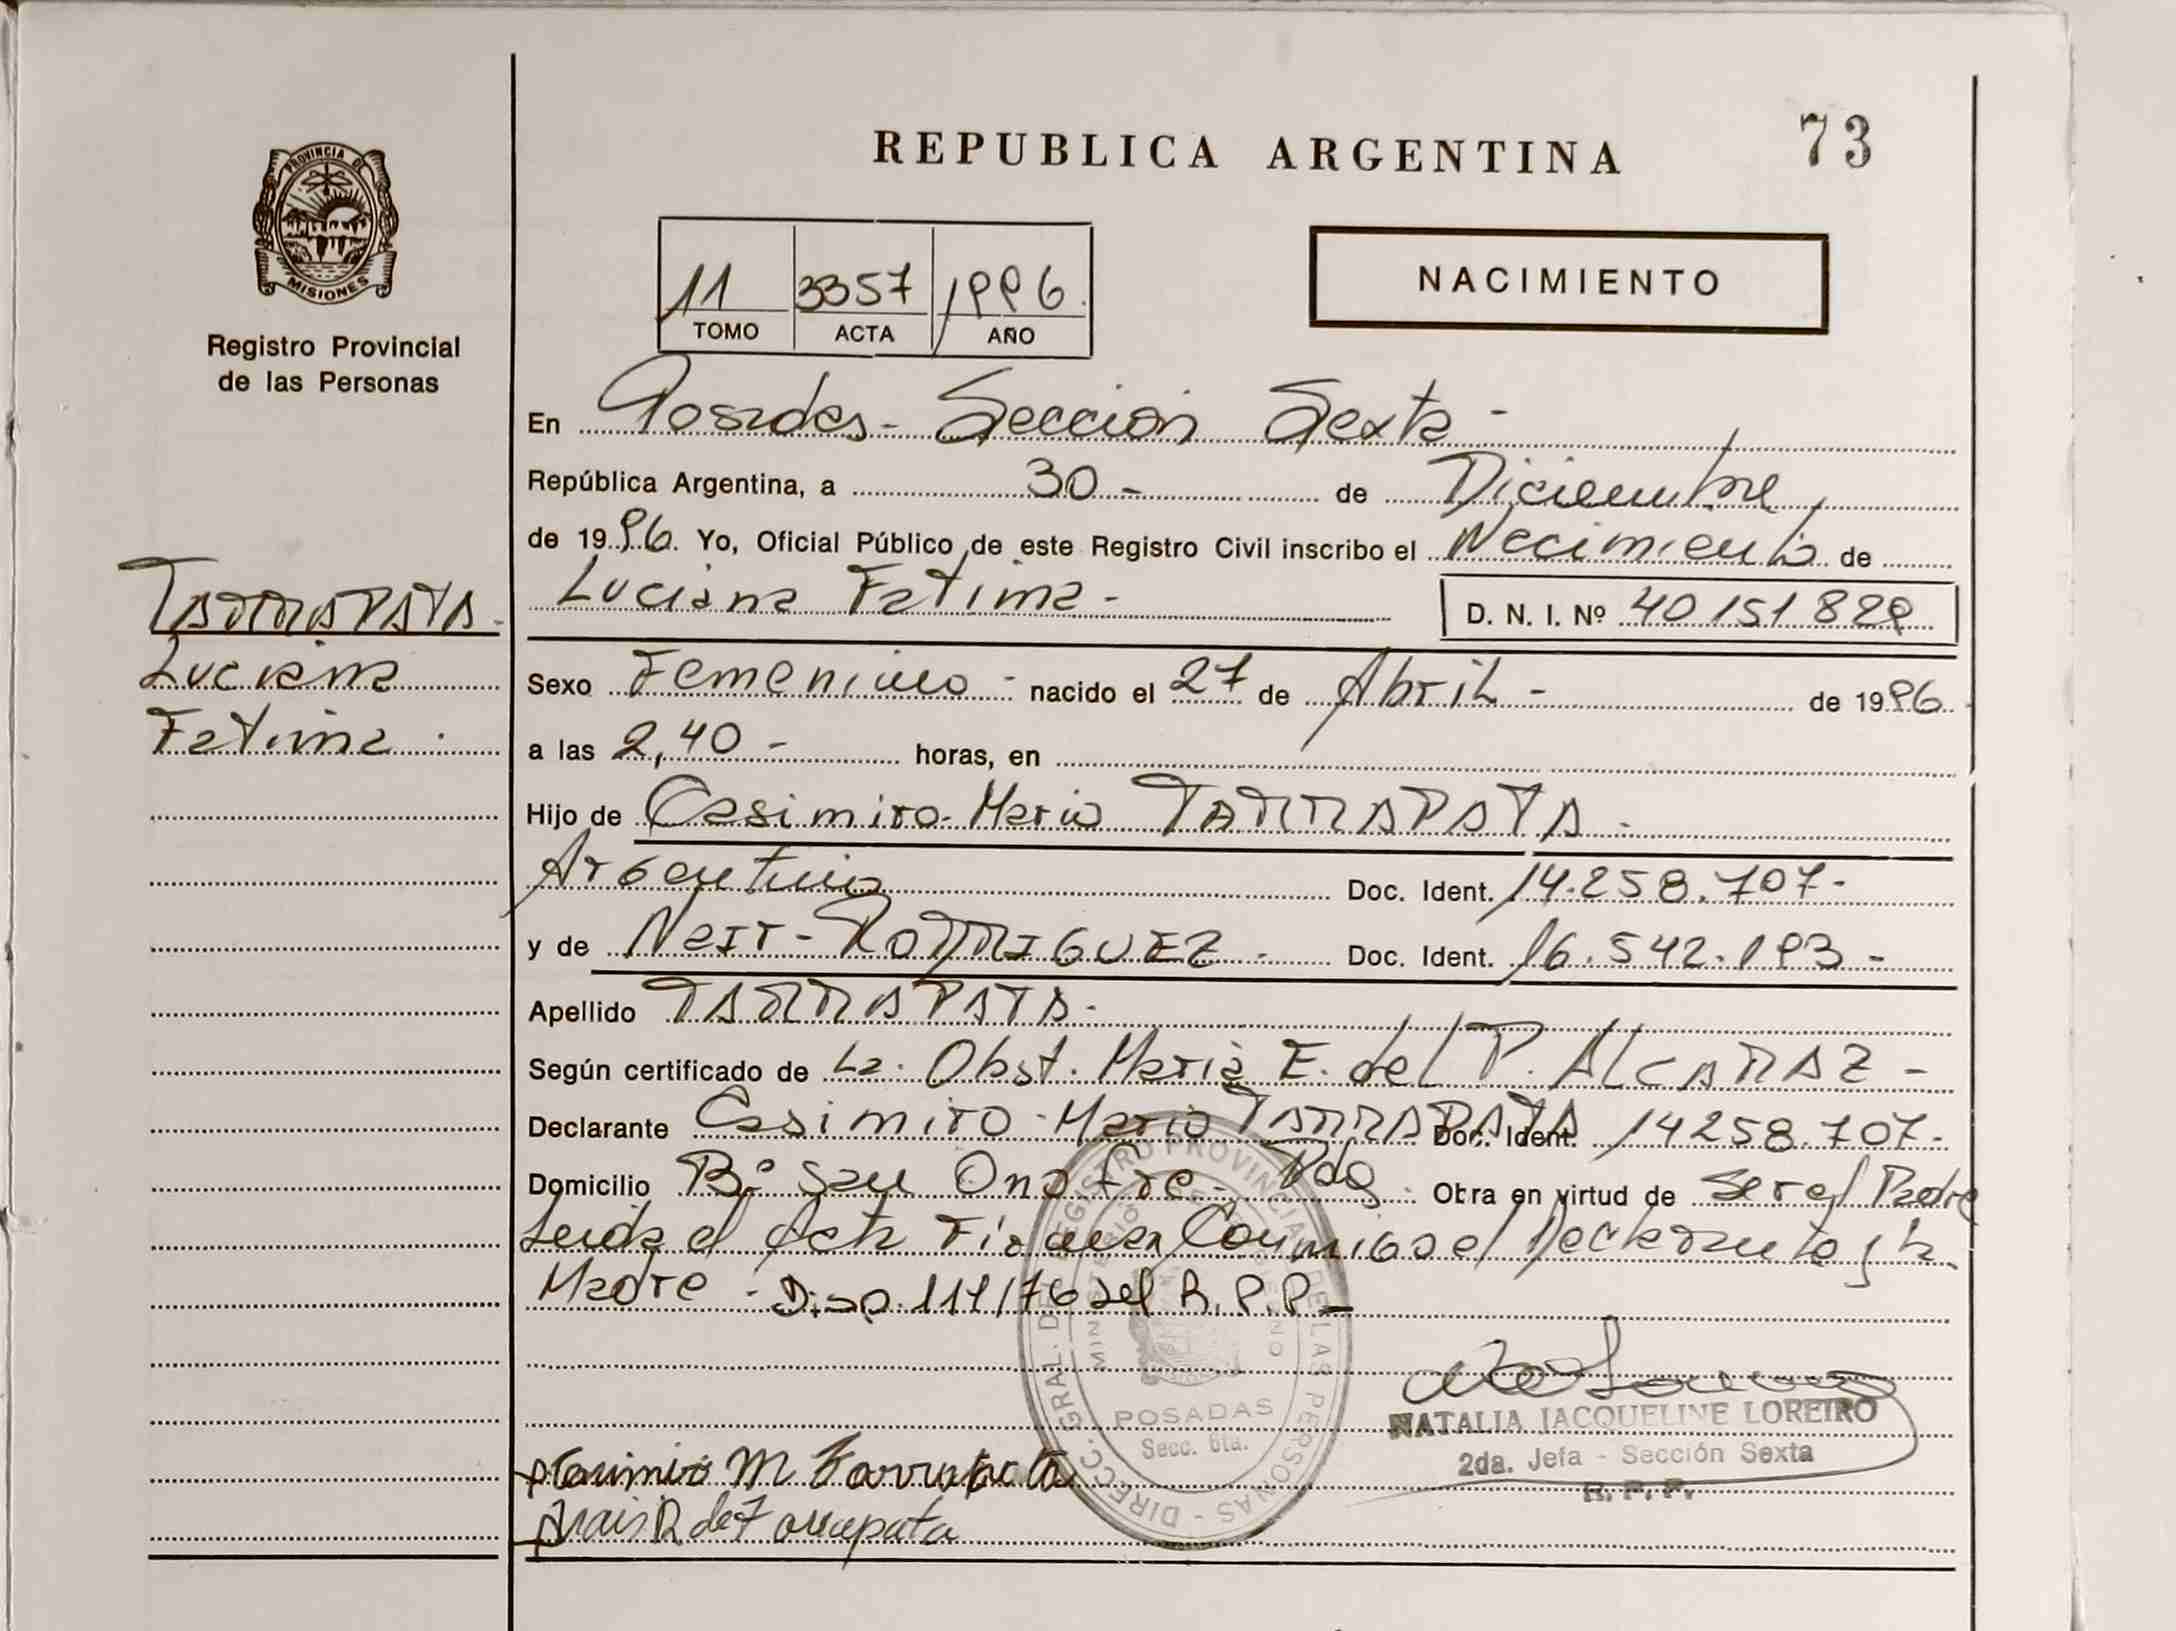 REPUBLICA ARGENTINA
73
PROVINCIA DE
MISIONES
Registro Provincial
de las Personas
11 3357 1996
TOMO ACTA AÑO
NACIMIENTO
En Posadas - Sección Sexta -
República Argentina, a 30 - de Diciembre
de 1996. Yo, Oficial Público de este Registro Civil inscribo el Nacimiento de
Luciana Fatima -
D. N. I. Nº 40151829
TARRAPATA -
Luciana
Fatima
Sexo Femenino - nacido el 27 de Abril - de 1996
a las 2,40 - horas, en
Hijo de Casimiro Mario TARRAPATA -
Argentino Doc. Ident. 14.258.707-
y de RODRIGUEZ - Doc. Ident. 16.542.193 -
Apellido TARRAPATA -
Según certificado de La. Obst. Maria E. del P. ALCARAZ -
Declarante Casimiro Mario TARRAPATA Doc. Ident. 14258.707-
Domicilio Bº San Onofre Pdas. Obra en virtud de Ser el Padre
Leida el Acta Firman Conmigo el Declarante y la
Madre - Disp. 111/76 del R.P.P. -
DIRECC. GRAL. DEL REGISTRO PROVINCIAL DE LAS PERSONAS
POSADAS
Secc. 6ta.
NATALIA JACQUELINE LOREIRO
2da. Jefa - Sección Sexta
R. P. P.
Casimiro M Tarrapata
R de Tarrapata